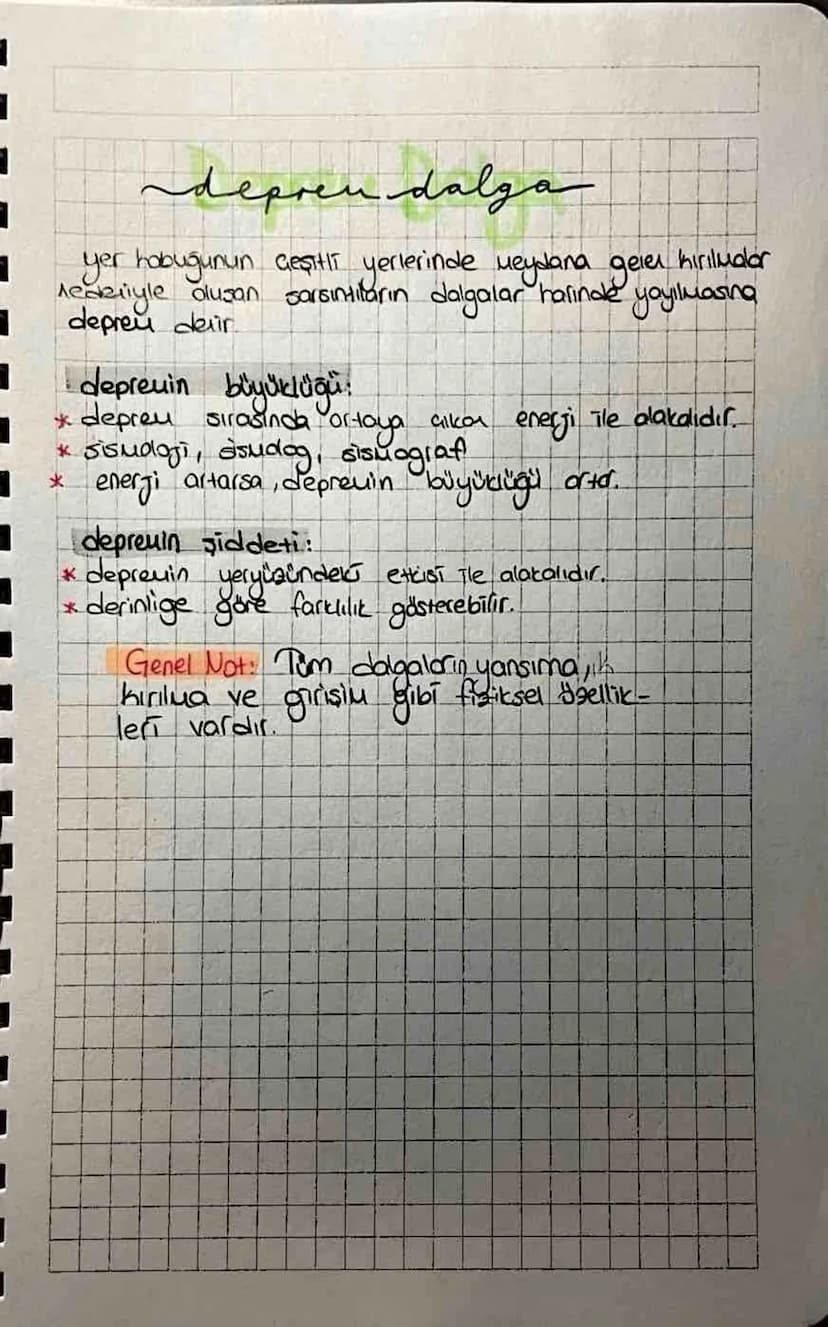 deprem dalga
yer kabuğunun çeşitli yerlerinde meydana gelen kırılmalar
nedeniyle oluşan sarsıntıların dalgalar halinde yayılmasına
deprem denir.
depremin büyüklüğü:
* deprem sırasında ortaya çıkan enerji ile alakalıdır.
* sismoloji, sismolog, sismograf
* enerji artarsa, depremin büyüklüğü artar.
depremin şiddeti:
* depremin yeryüzündeki etkisi ile alakalıdır.
* derinliğe göre farklılık gösterebilir.
Genel Not: Tüm dalgaların yansıma,
kırılma ve girişim gibi fiziksel özellik-
leri vardır.